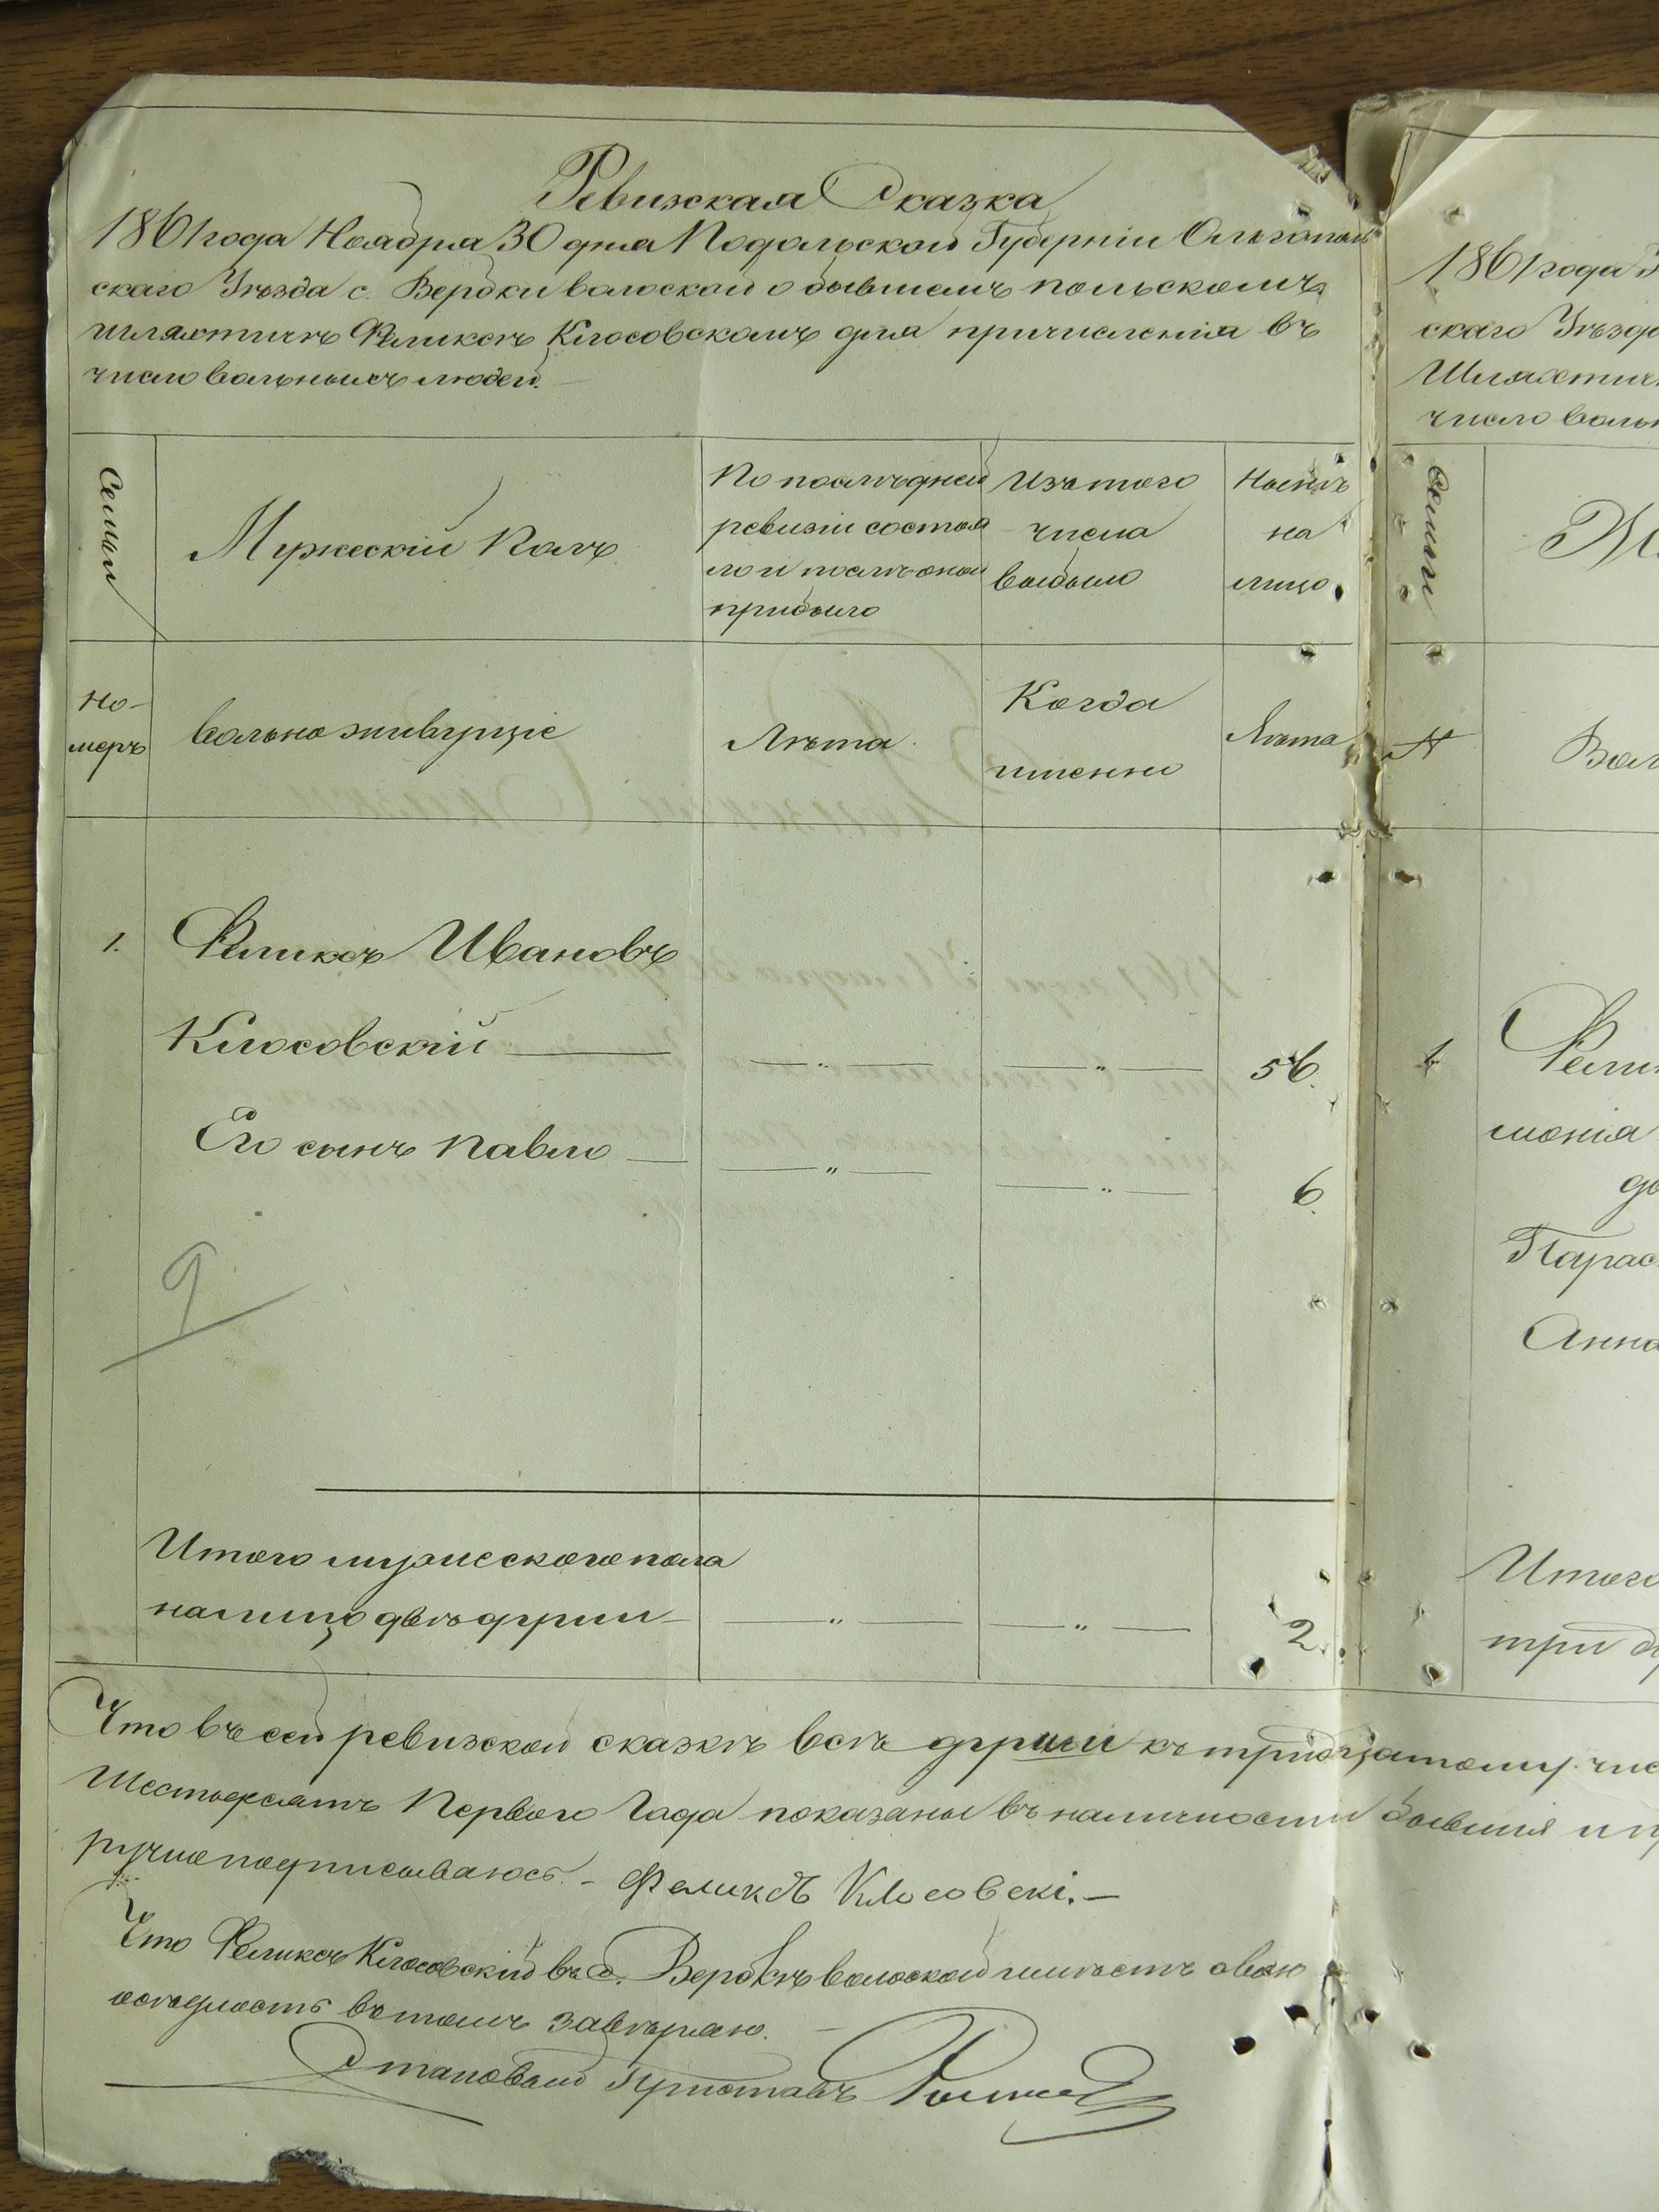 Ревизская Сказка
1861 года Ноября 30 дня Подольской Губерніи Ольгополь
скаго Уѣзда с. Вербки волоской о бывшемъ польскомъ
шляхтичѣ Феликсѣ Клосовскомъ для причисленія въ
число вольныхъ людей.
Семьи
Мужескій Полъ
По послѣдней
ревизіи состоя
ло и послѣ оной
прибыло
Изъ того
числа
выбыло
Нынѣ
на
лицо
Но-
меръ
вольно живущіе
Лѣта
Когда
именно
Лѣта
1. Феликсъ Ивановъ
Клосовскій — „ — — „ — 56.
Его сынъ Павло — — „ — — „ — 6.
9
Итого мужескаго пола
налицо двѣ души — „ — — „ — 2.
Что въ сей ревизской сказкѣ всѣ души къ тридцатому чис
Шестьдесятъ Перваго Года показаны въ наличности бывшія и
ручно подписываюсь. – Феликсъ Клосовскі. —
Что Феликсъ Клосовскій въ с. Вербкѣ волоской имѣетъ свою
осѣдлость въ томъ завѣряю. —
Становой Приставъ
1861 года
скаго Уѣзда
Шляхтич
число воль
Семьи
№
Вол
1
Фели
монія
до
Парас
Анна
Итого
три д